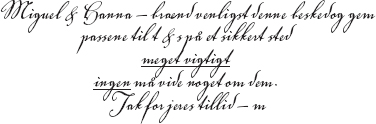 Miguel & Hanna – brænd venligst denne besked og gem
passene til t & s på et sikkert sted
meget vigtigt
ingen må vide noget om dem.
Tak for jeres tillid – m